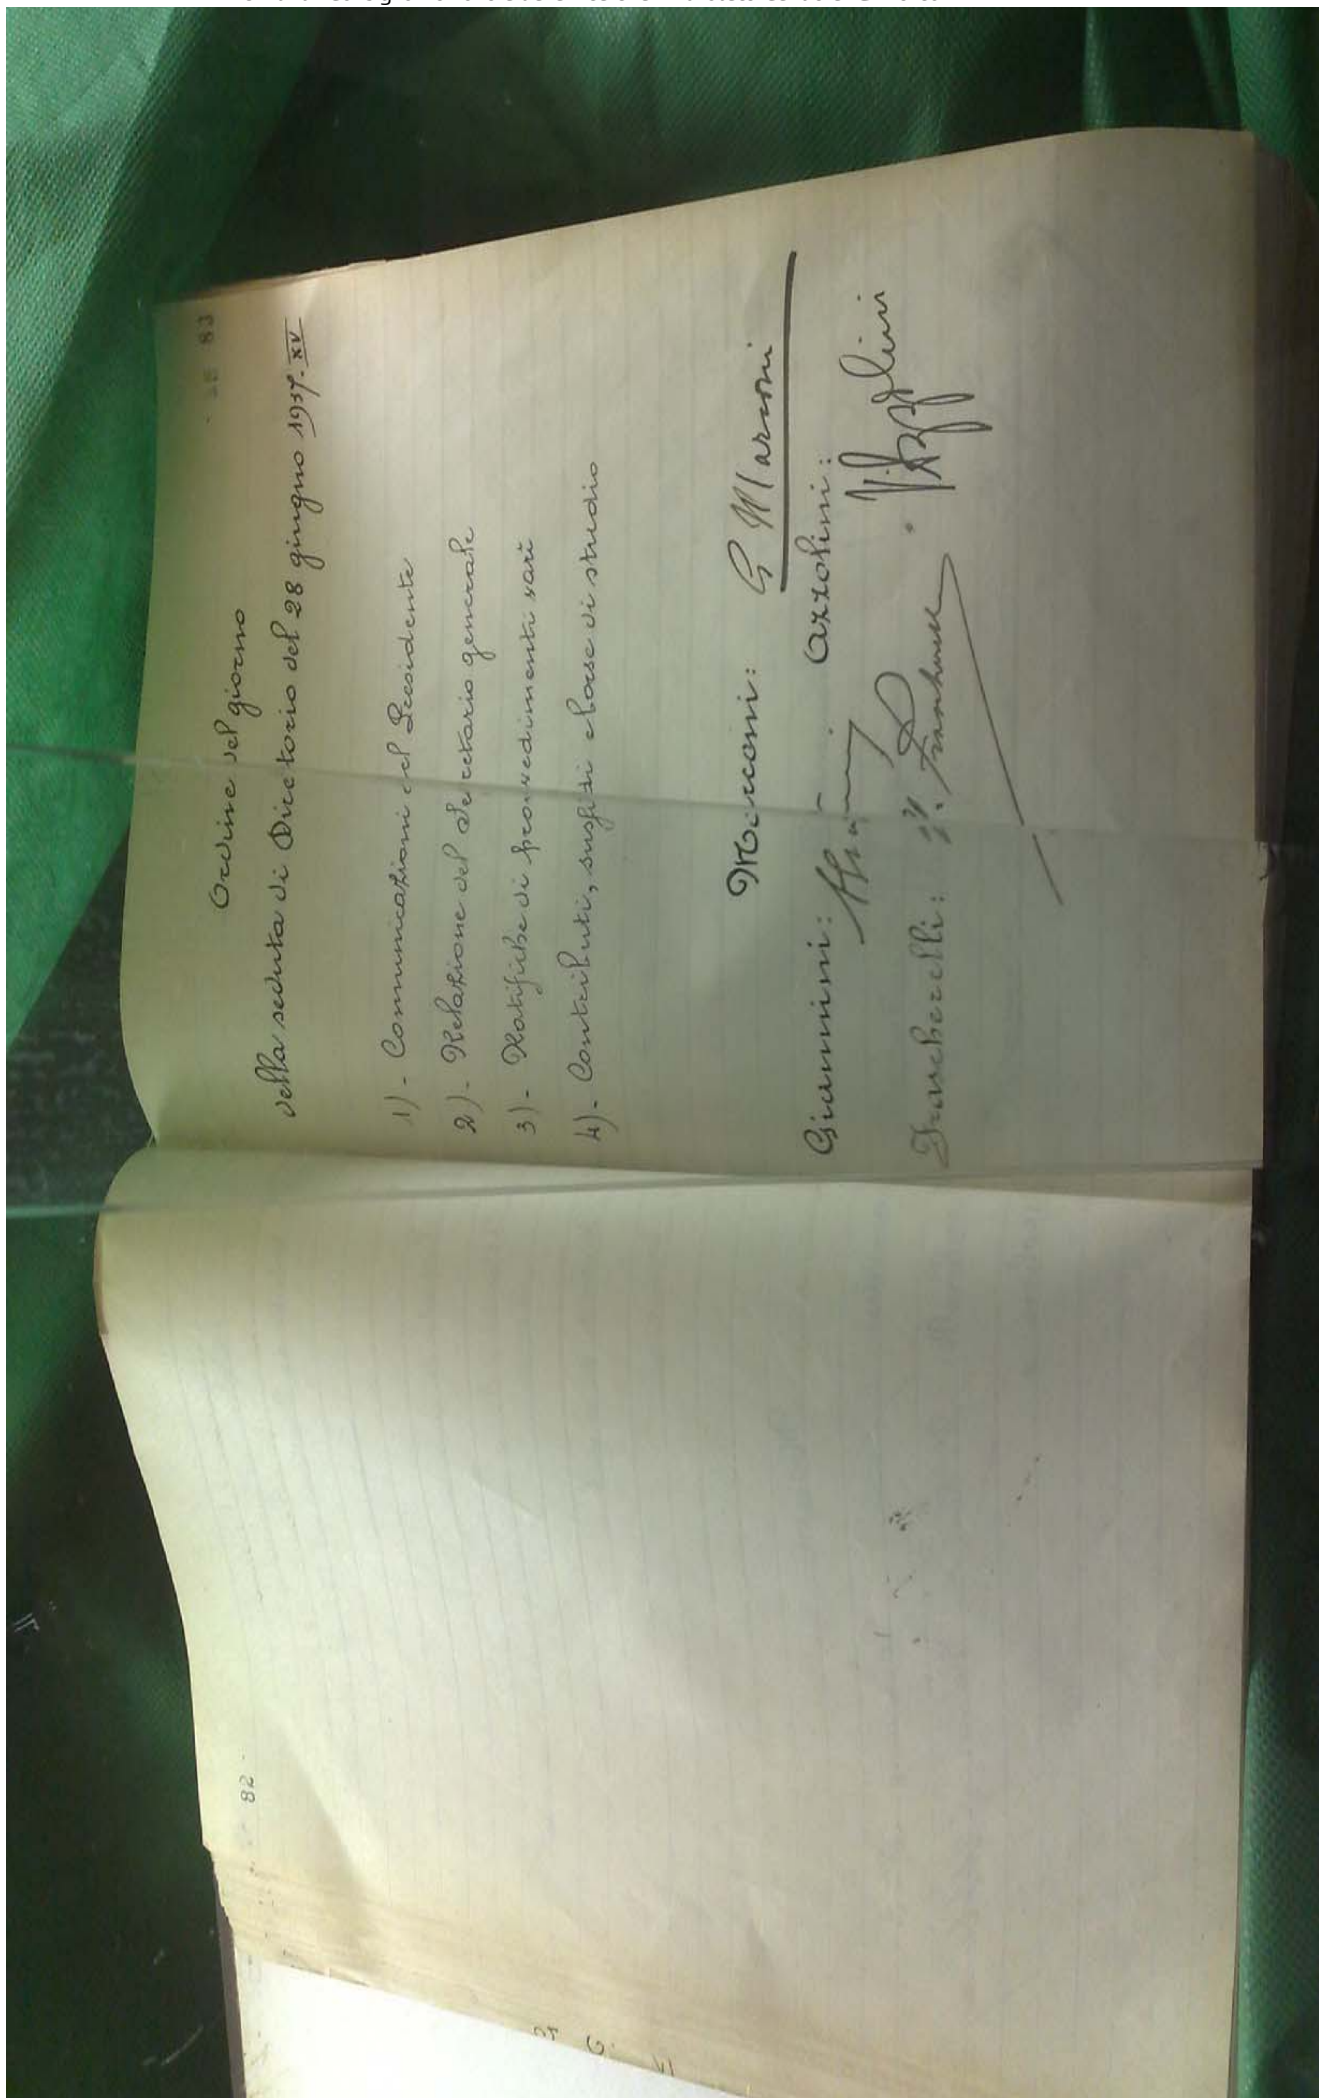 82
83
Ordine del giorno
della seduta di Direttorio del 28 giugno 1937. XV
1)- Comunicazioni del Presidente
2)- Relazione del Segretario generale
3)- Ratifiche di provvedimenti varî
4)- Contributi, sussidi e borse di studio
Marconi: G Marconi
Giannini: Azzolini: V Azzolini
Frascherelli: